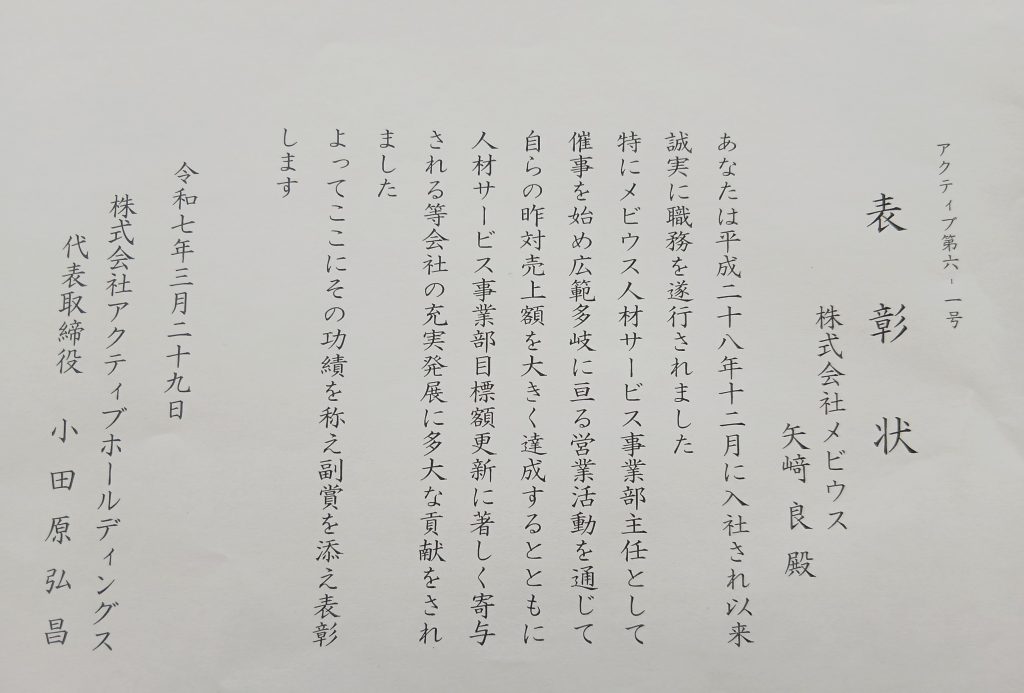 アクティブ第六-一号
表彰状
株式会社メビウス
矢﨑良殿
あなたは平成二十八年十二月に入社され以来
誠実に職務を遂行されました
特にメビウス人材サービス事業部主任として
催事を始め広範多岐に亘る営業活動を通じて
自らの昨対売上額を大きく達成するとともに
人材サービス事業部目標額更新に著しく寄与
される等会社の充実発展に多大な貢献をされ
ました
よってここにその功績を称え副賞を添え表彰
します
令和七年三月二十九日
株式会社アクティブホールディングス
代表取締役 小田原弘昌